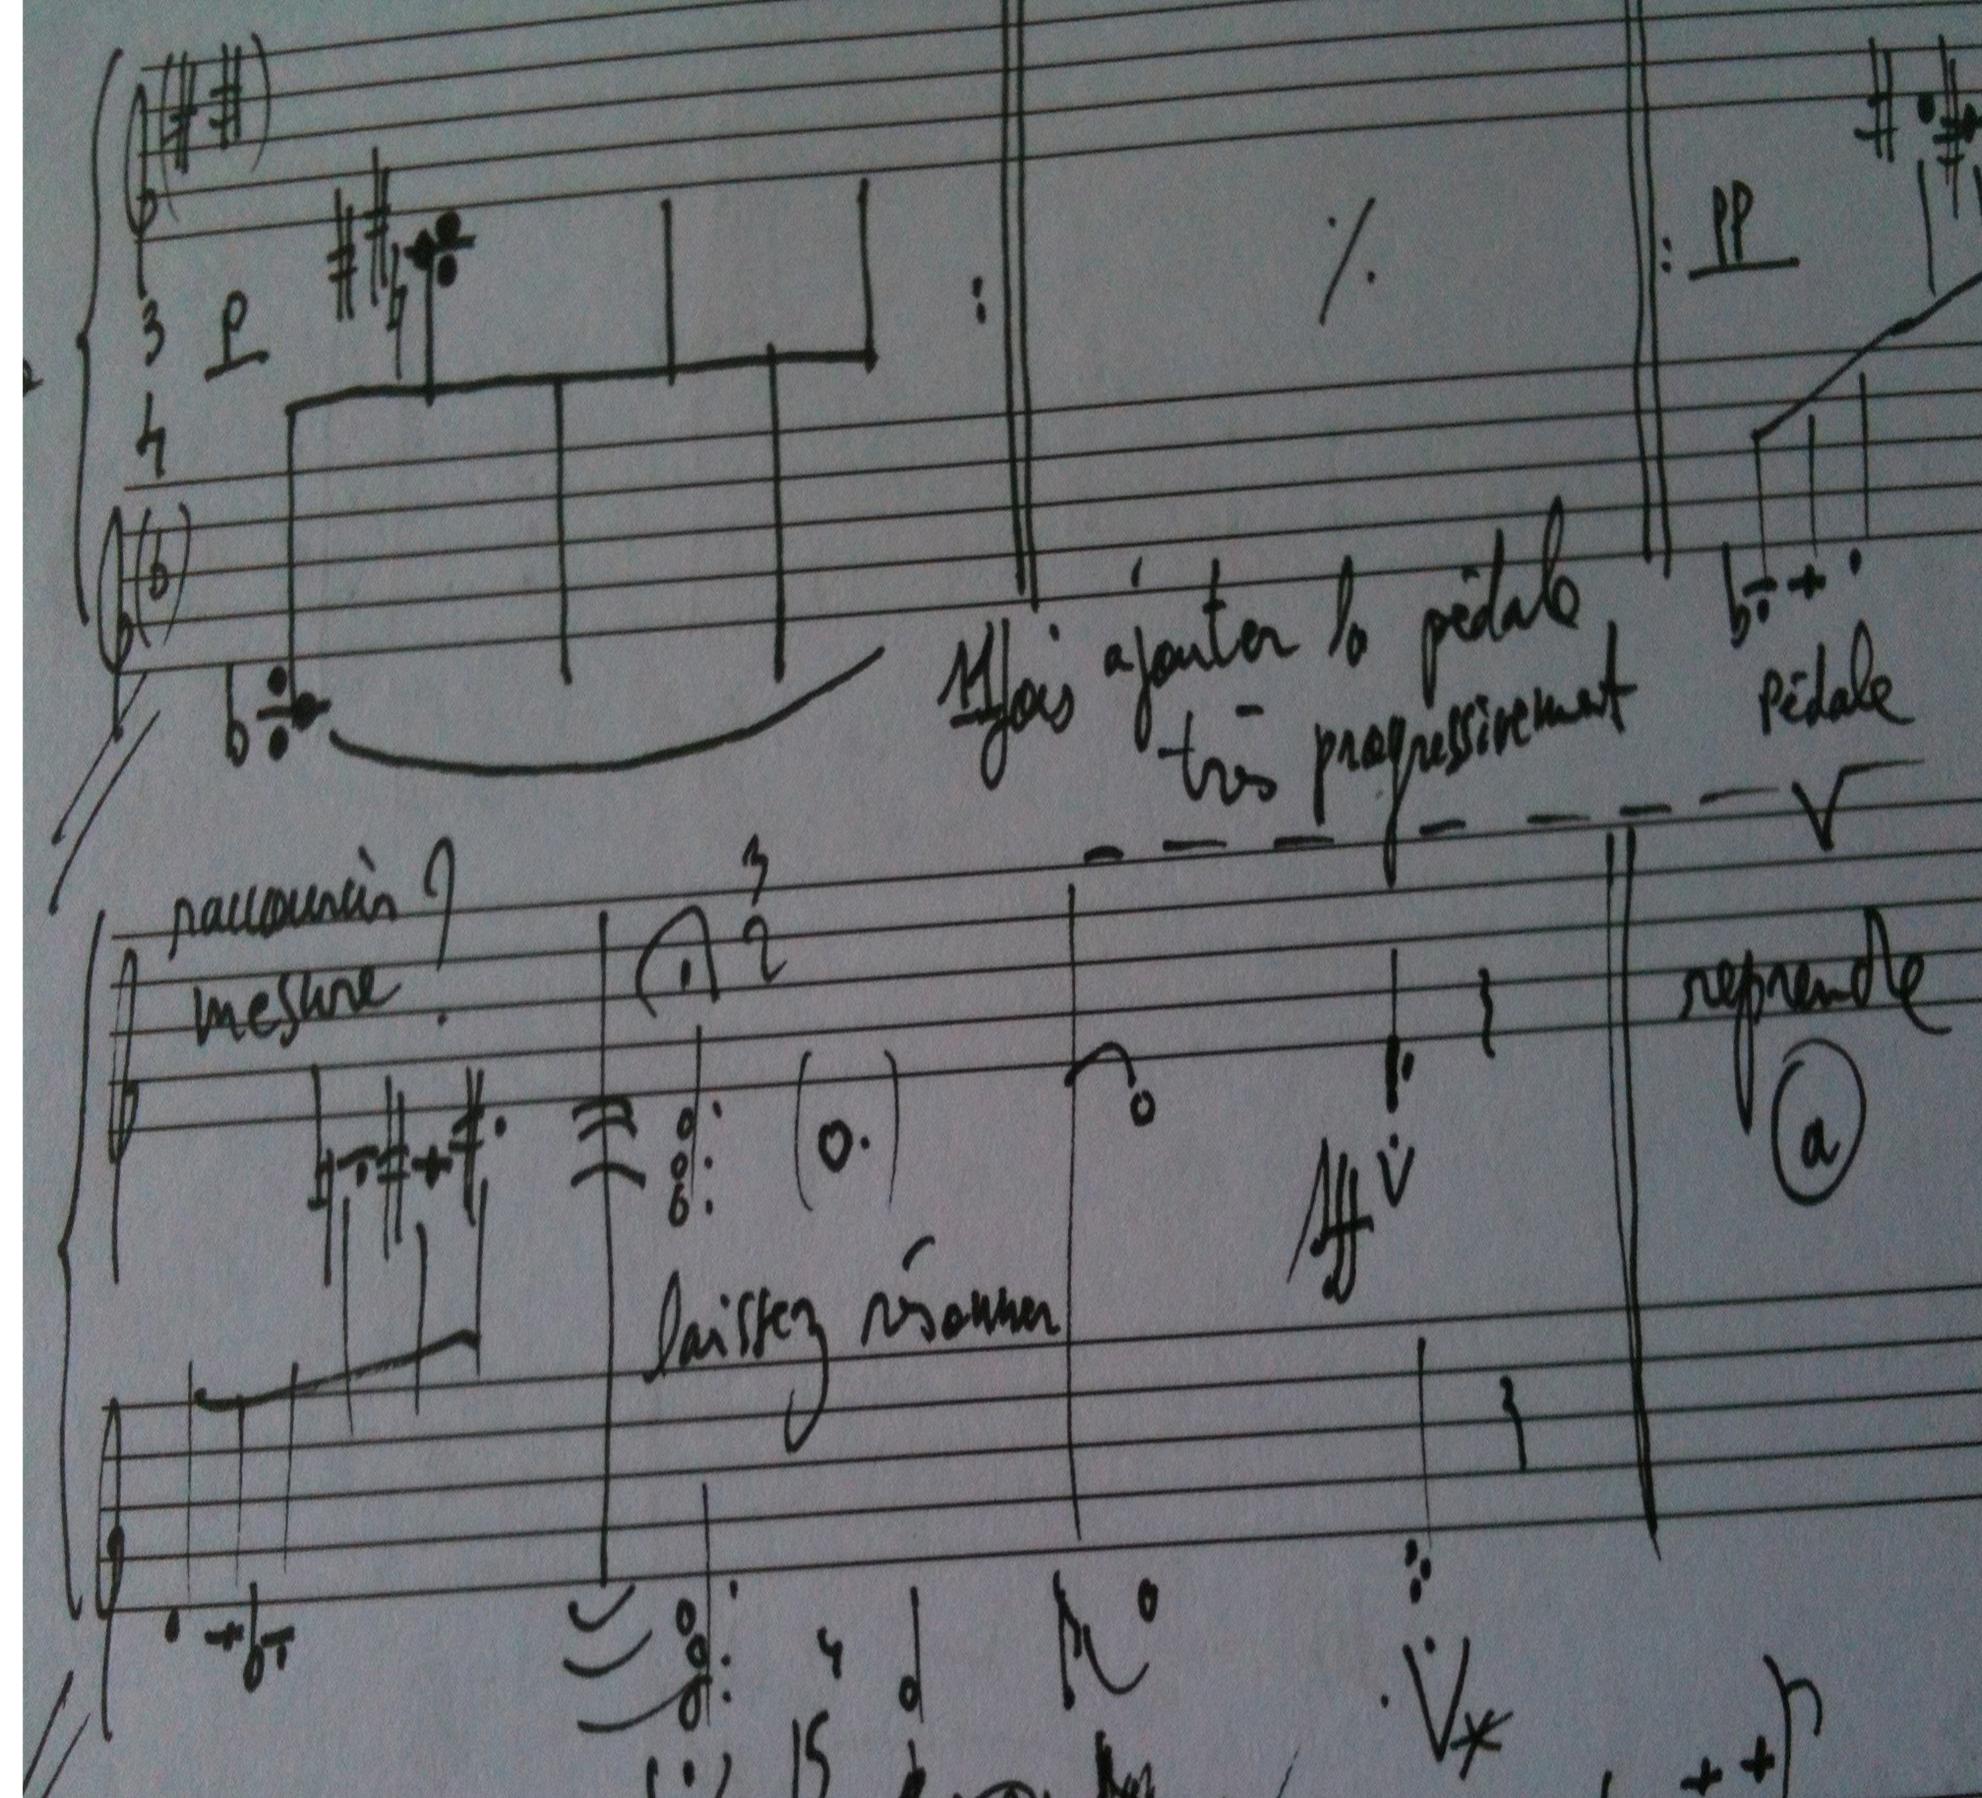 3
4
P
PP
ajouter la pédale
très progressivement
pédale
raccourcir ?
mesure
3
2
reprendre
a
laissez résonner
fff